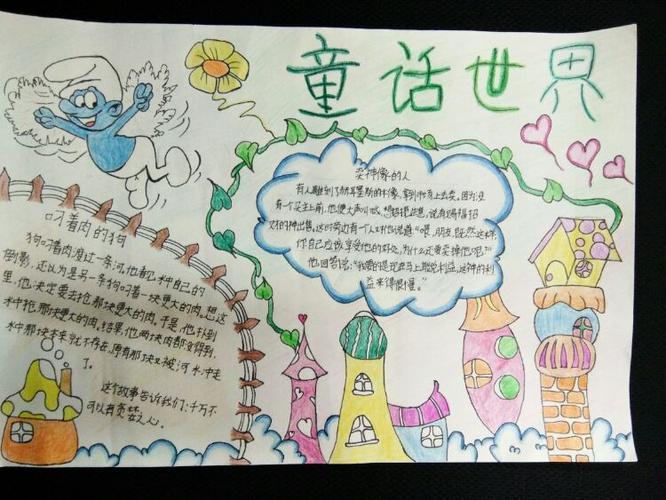 童话世界
叼着肉的狗
狗叼着肉渡过一条河,他看见水中自己的
倒影,还以为是另一条狗叼着一块更大的肉,想这
里,他决定要去抢那块更大的肉,于是,他扑到
水中抢那块更大的肉。结果,他两块肉都没得到,
水中那块本来就不存在,原有那块又被河水冲走
了。
这个故事告诉我们:千万不
可以有贪婪之心。
卖神像的人
有人雕刻了赫耳墨斯的木像,拿到市场上去卖。因为没
有一个买主上前,他便大声叫喊,想招揽生意,说有赐福招
财的神出售。这时旁边有一个人对他说道:“喂,朋友,既然这样,
你自己应该享受他的好处,为什么还要卖掉他呢?”
他回答说:“我要的是现在马上能兑利益,这神的利
益来得很慢。”